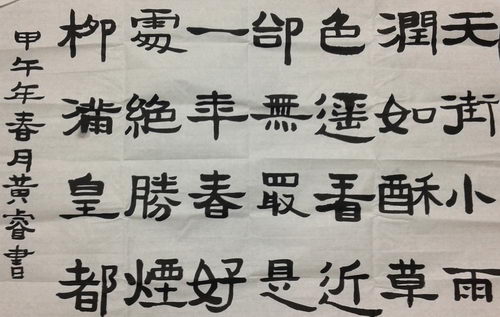 天街小雨
潤如酥草
色遥看近
卻無最是
一年春好
處絶勝煙
柳滿皇都
甲午年春月黄睿書